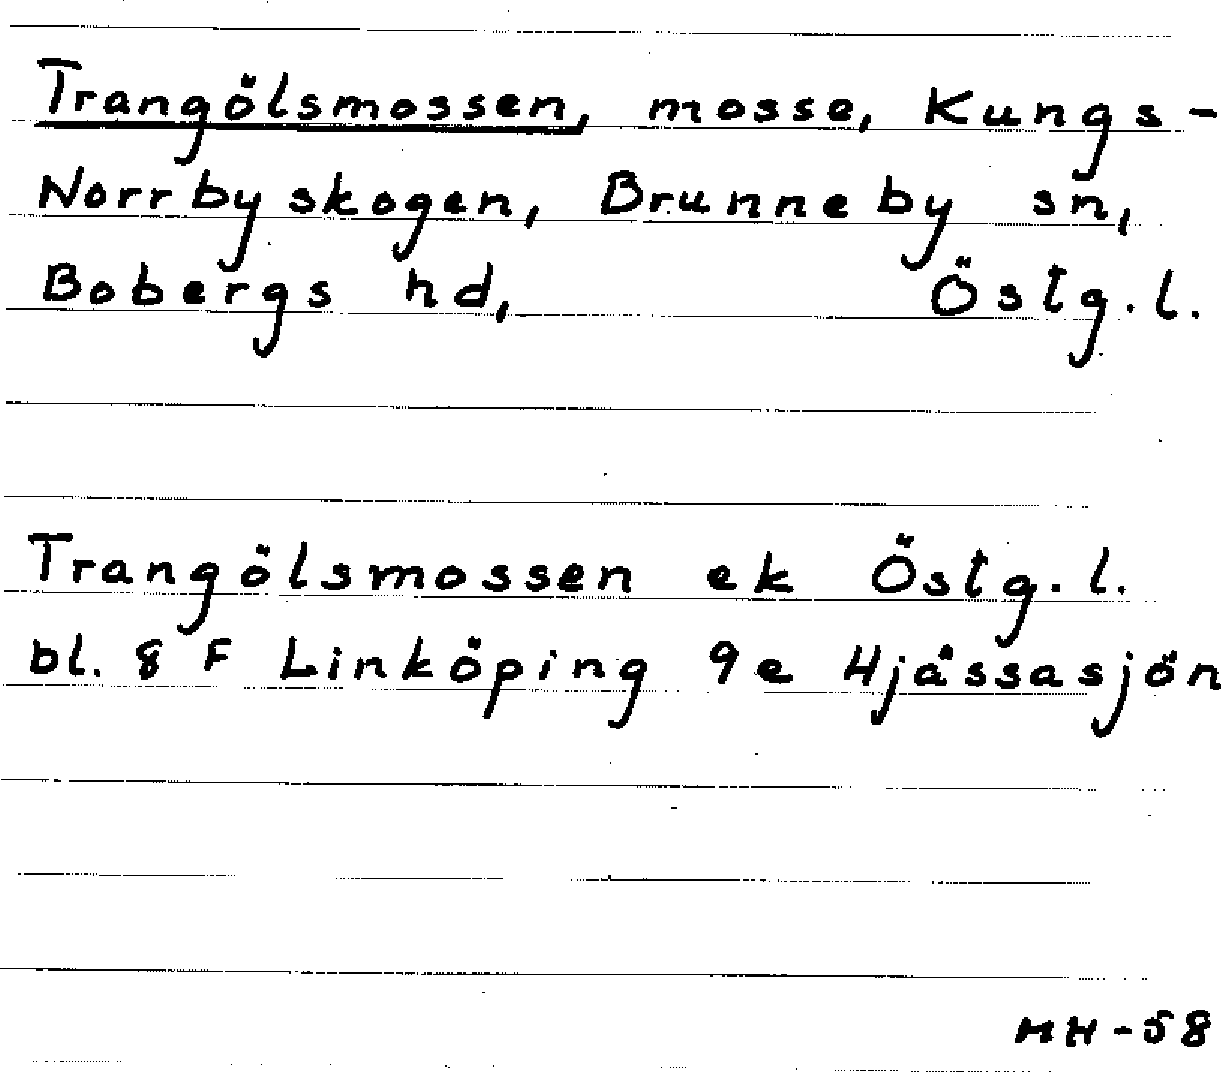 Trangölsmossen, mosse, Kungs-
Norrbyskogen, Brunneby sn,
Bobergs hd, Östg.l.
Trangölsmossen ek Östg.l.
bl. 8 F Linköping 9e Hjässasjön
HH-58